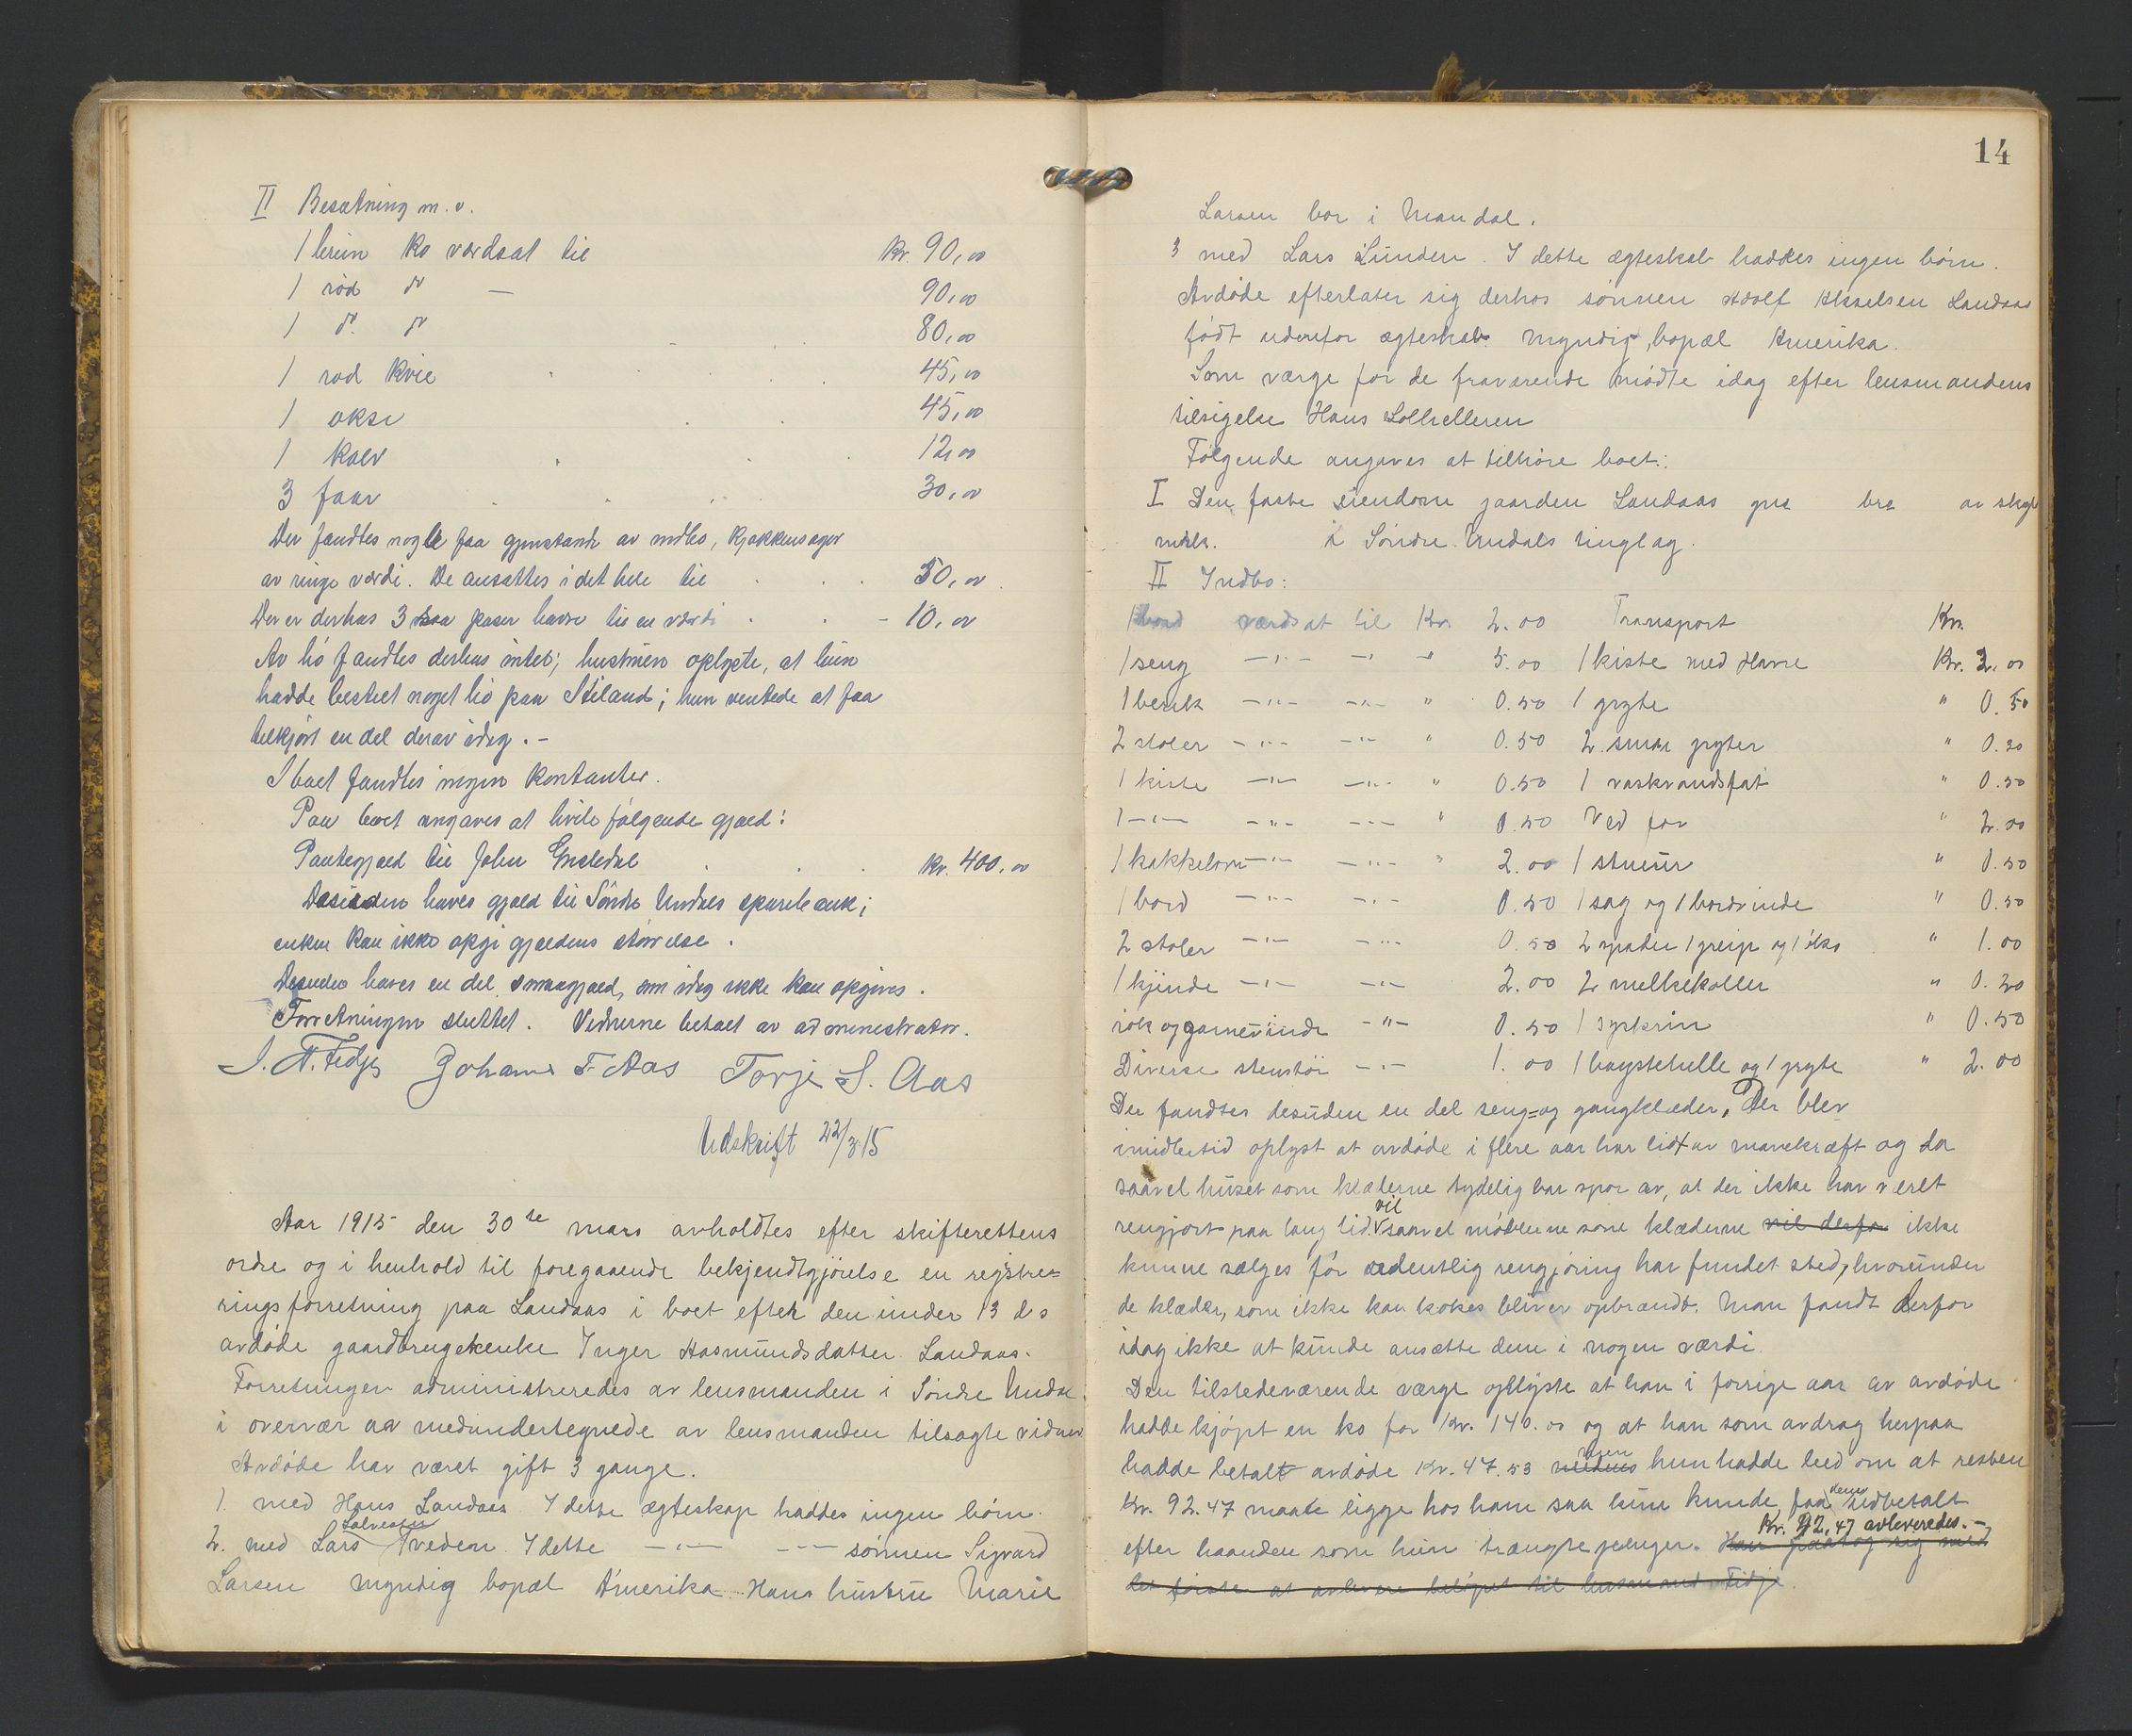 II Besætning m.v.
1 brun ko værdsat til kr. 90,00
1 rød do — 90,00
1 do. do 80,00
1 rød kvie 45,00
1 okse 45,00
1 kalv 12,00
3 faar 30,00
Der fandtes nogle faa gjenstande av indbo, kjøkkensager
av ringe værdi. De ansattes i det hele til 50,00
Der er derhos 3 poser havre til en værdi - 10,00
Av hö fandtes derhos intet; hustruen oplyste, at hun
hadde bestilt noget hö paa Stiland; hun ventede at faa
tilkjørt en del derav idag. -
I boet fandtes ingen kontanter.
Paa boet angaves at hvile følgende gjæld:
Pantegjæld til John kr. 400,00
Desuden haves gjæld til Søndre Undals sparebank;
enken kan ikke opgi gjældens størrelse.
Desuden haves en del smaagjæld, som idag ikke kan opgives.
Forretningen sluttet. Vidnerne betalt av administrator.
Johans T. Aas Torje S. Aas
Udskrift 22/3 15
Aar 1915 den 30te mars avholdtes efter skifterettens
ordre og i henhold til foregaaende bekjendtgjörelse en registre=
ringsforretning paa Landaas i boet efter den under 13 ds
avdöde gaardbrugerenke Inger Aasmundsdatter Landaas.
Forretningen administreredes av lensmanden i Söndre Undal
i overvær av medundertegnede av lensmanden tilsagte vidner
Avdöde har været gift 3 gange.
1. med Hans Landaas. I dette ægteskap haddes ingen börn.
Salvesen
2. med Lars Tveden. I dette —"— —"— sönnen Sigvard
Larsen myndig bopæl Amerika. Hans hustru Marie
14
Larsen bor i Mandal.
3 med Lars Lunden. I dette ægteskab haddes ingen börn.
Avdöde efterlater sig derhos sönnen Adolf Akselsen Landaas
födt udenfor ægteskab. myndig, bopæl Amerika.
Som værge for de fraværende mödte idag efter lensmandens
tilsigelse Hans
Fölgende angaves at tilhöre boet:
I Den faste eiendom gaarden Landaas gnr bnr av skyld
mark. i Söndre Undals tinglag.
II Indbo:
1 bord værdsat til Kr. 2.00 Transport Kr.
1 seng —"— —"— " 5.00 1 kiste med Havre Kr. 2.00
1 benk —"— —"— " 0.50 1 gryte " 0.50
2 stoler —"— —"— " 0.50 2 smaa gryter " 0.20
1 kiste —"— —"— " 0.50 1 vaskvandsfat " 0.50
1 —"— —"— —"— " 0.50 Ved for " 2.00
1 kakkelovn —"— —"— " 2.00 1 stueur " 0.50
1 bord —"— —"— 0.50 1 sag og 1 bordvinde " 0.50
2 stoler —"— —"— 0.50 2 spader 1 greip og 1 öks " 1.00
1 kjinde —"— —"— 2.00 2 melkekoller " 0.20
rok og garnevinde —"— 0.50 1 syskrin " 0.50
Diverse stentöi —"— 1.00 1 bagstehelle og 1 gryte " 2.00
Der fandtes desuden en del seng= og gangklæder, Der blev
imidlertid oplyst at avdöde i flere aar har lidt av mavekræft og da
saavel huset som klæderne tydelig bar spor av, at der ikke har været
vil
rengjort paa lang tid. saavel möblerne som klæderne vil derfor ikke
kunne sælges för ordentlig rengjöring har fundet sted, hvorunder
de klæder, som ikke kan kokes bliver opbrændt. Man fandt derfor
idag ikke at kunde ansætte dem i nogen værdi.
Den tilstedeværende værge oplyste at han i forrige aar av avdöde
hadde kjöpt en ko for Kr. 140.00 og at han som avdrag herpaa
men
hadde betalt avdöde Kr. 47.53 medens hun hadde bed om at resten
dem
Kr. 92.47 maatte ligge hos ham saa hun kunde faa udbetalt
Kr. 92,47 avleveredes.-
efter haanden som hun trængte penger. Han paatog sig med
det förste at avlevere belöpet til lensmand Fidje.